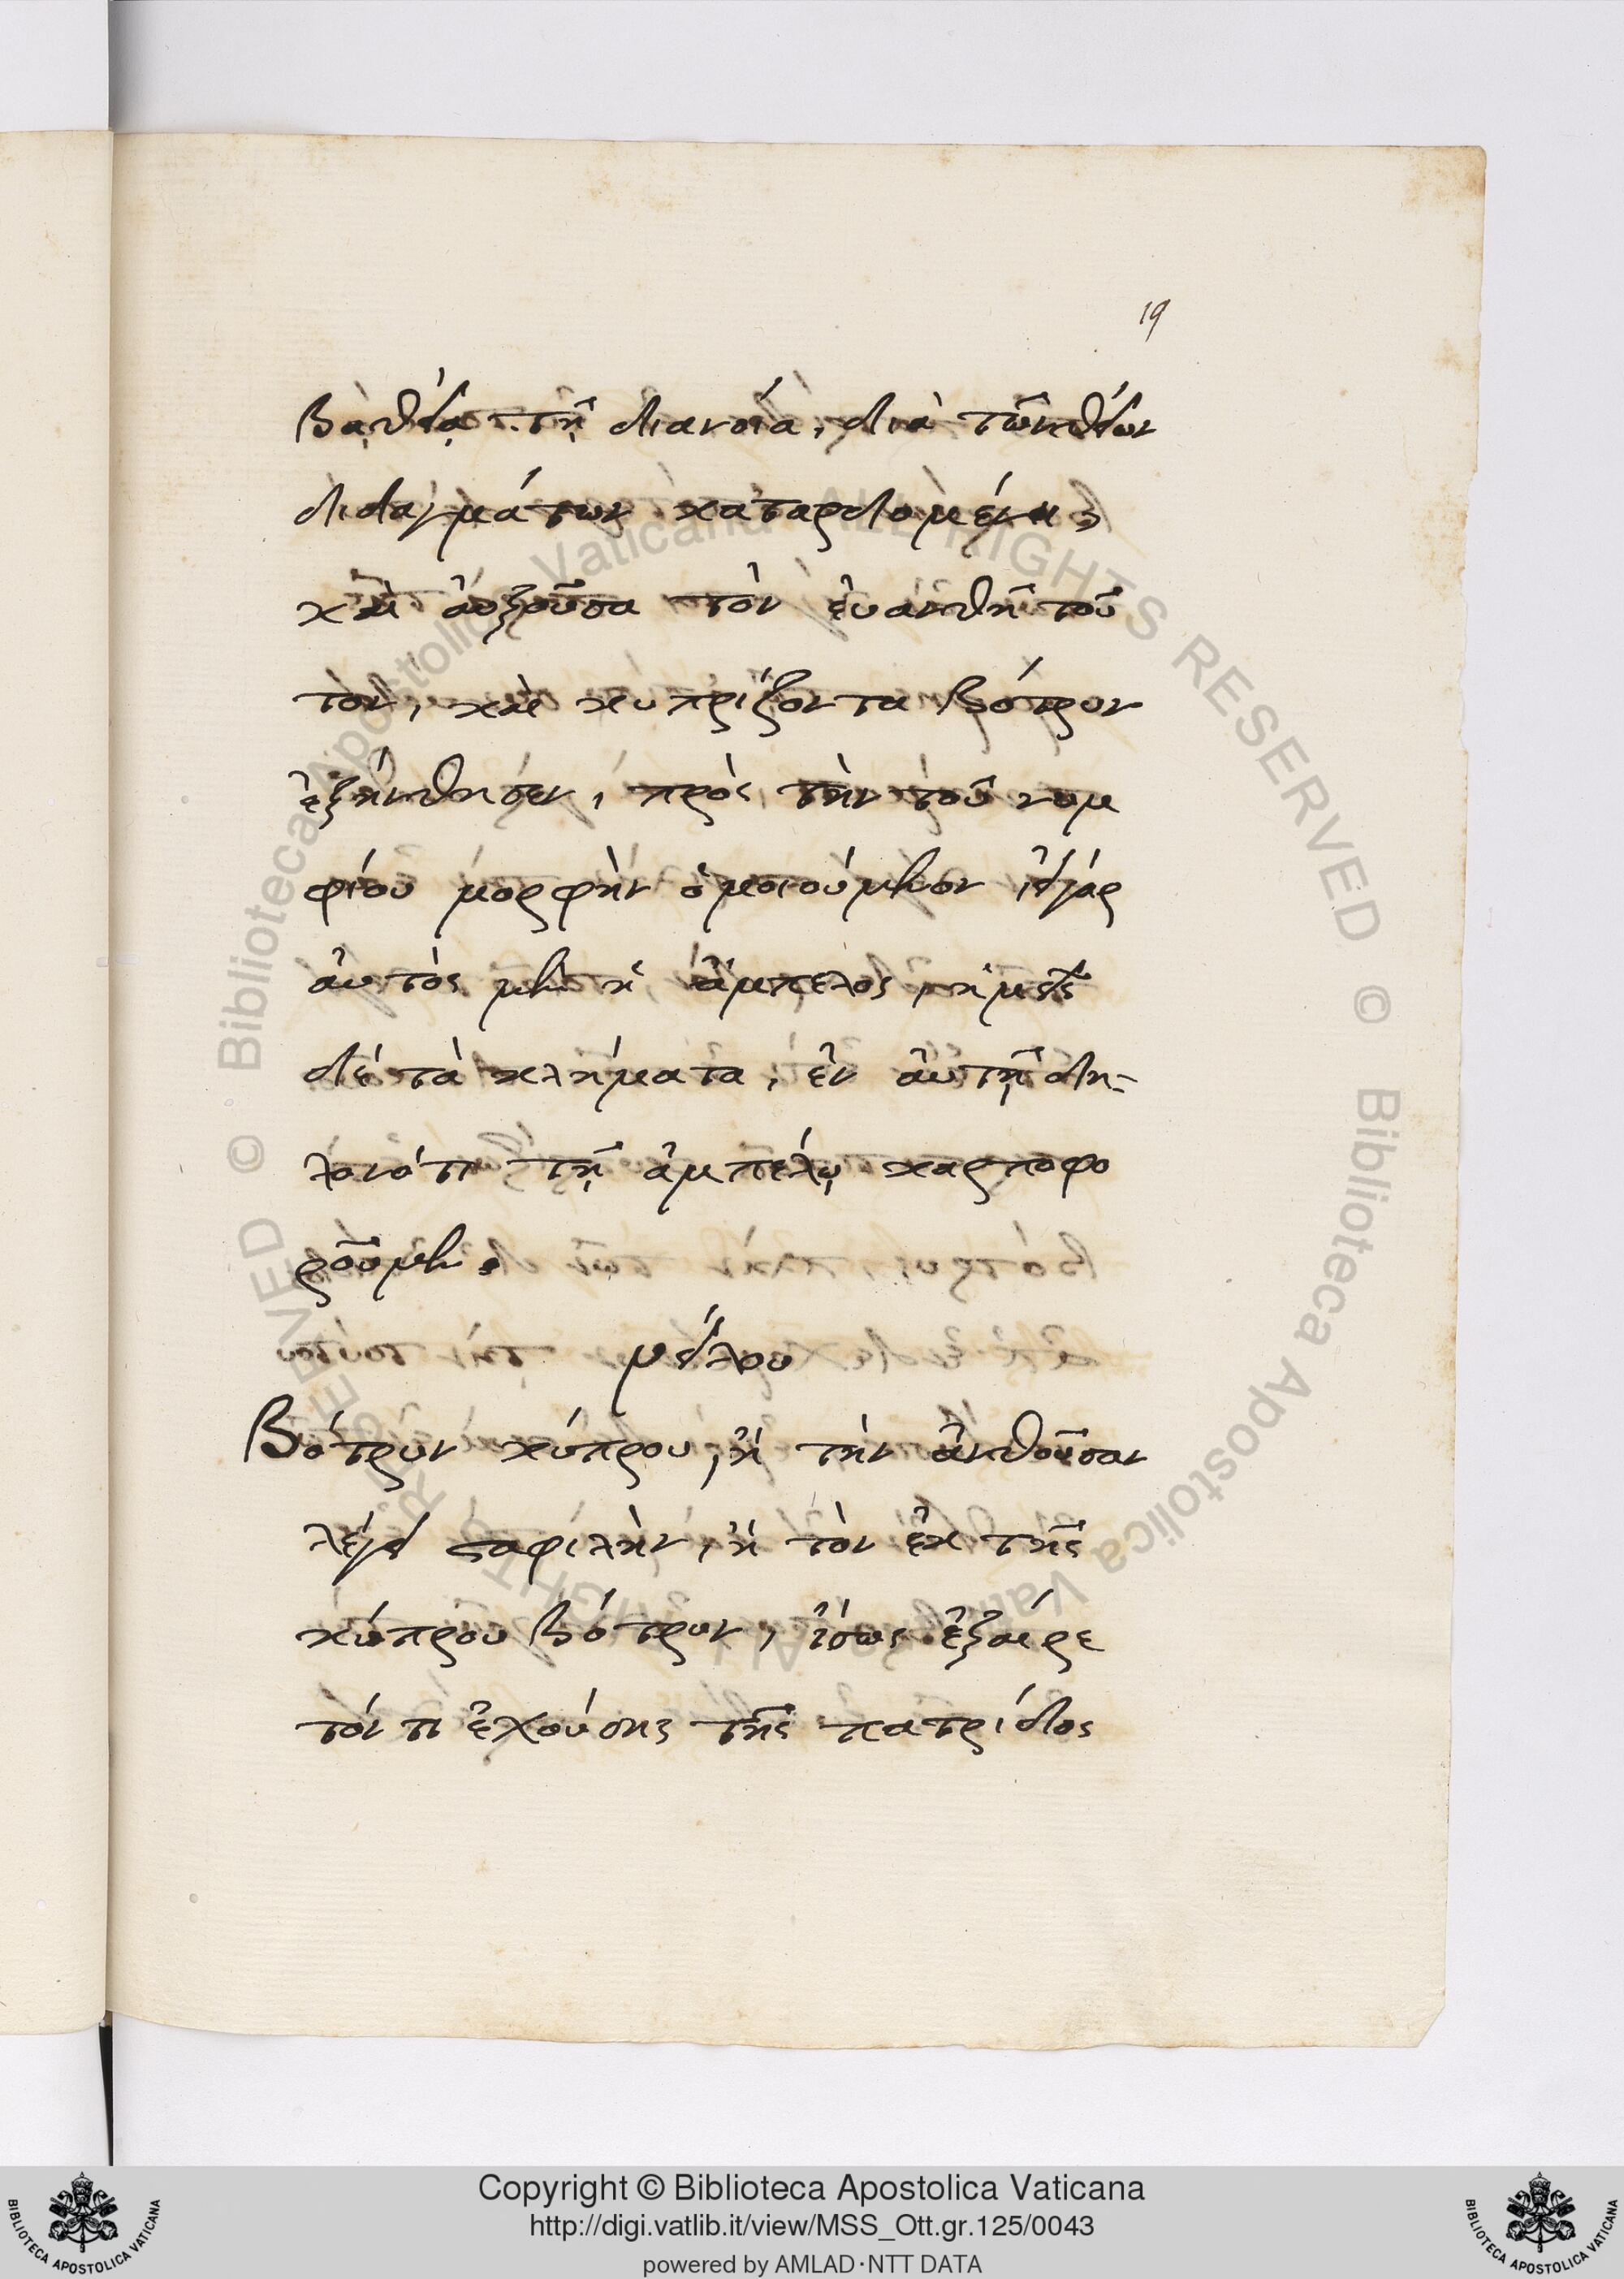 19
βαθεία τῇ διανοία, διὰ τῶν θείων
διδαγμάτων καταρδομένη
καὶ ἀυξοῦσα τὸν ἐυανθῆ τοῦ
τον, καὶ κυπρίζοντα βότρυν
ἐξήνθησεν, πρὸς τὴν τοῦ νυμ
φίου μορφὴν ὁμοιούμενον, εἰ γάρ
ἀυτὸς μὲν ἡ ἄμπελος, ἡμεῖς
δέ τὰ κλήματα, ἐν ἀυτῇ δη-
λονότι τῇ ἀμπέλῳ καρποφο
ροῦμεν.
νείλου
Βότρυν κύπρου, ἢ τὴν ἀνθοῦσαν
λέγει σταφιλὴν, ἢ τὸν ἐκ τῆς
κύπρου βότρυν, ἴσως ἐξαίρε
τόν τι ἐχούσης τῆς πατρίδος
Copyright © Biblioteca Apostolica Vaticana
http://digi.vatlib.it/view/MSS_Ott.gr.125/0043
powered by AMLAD·NTT DATA
BIBLIOTECA APOSTOLICA VATICANA
BIBLIOTECA APOSTOLICA VATICANA
© Biblioteca Apostolica Vaticana ALL RIGHTS RESERVED © Biblioteca Apostolica Vaticana ALL RIGHTS RESERVED